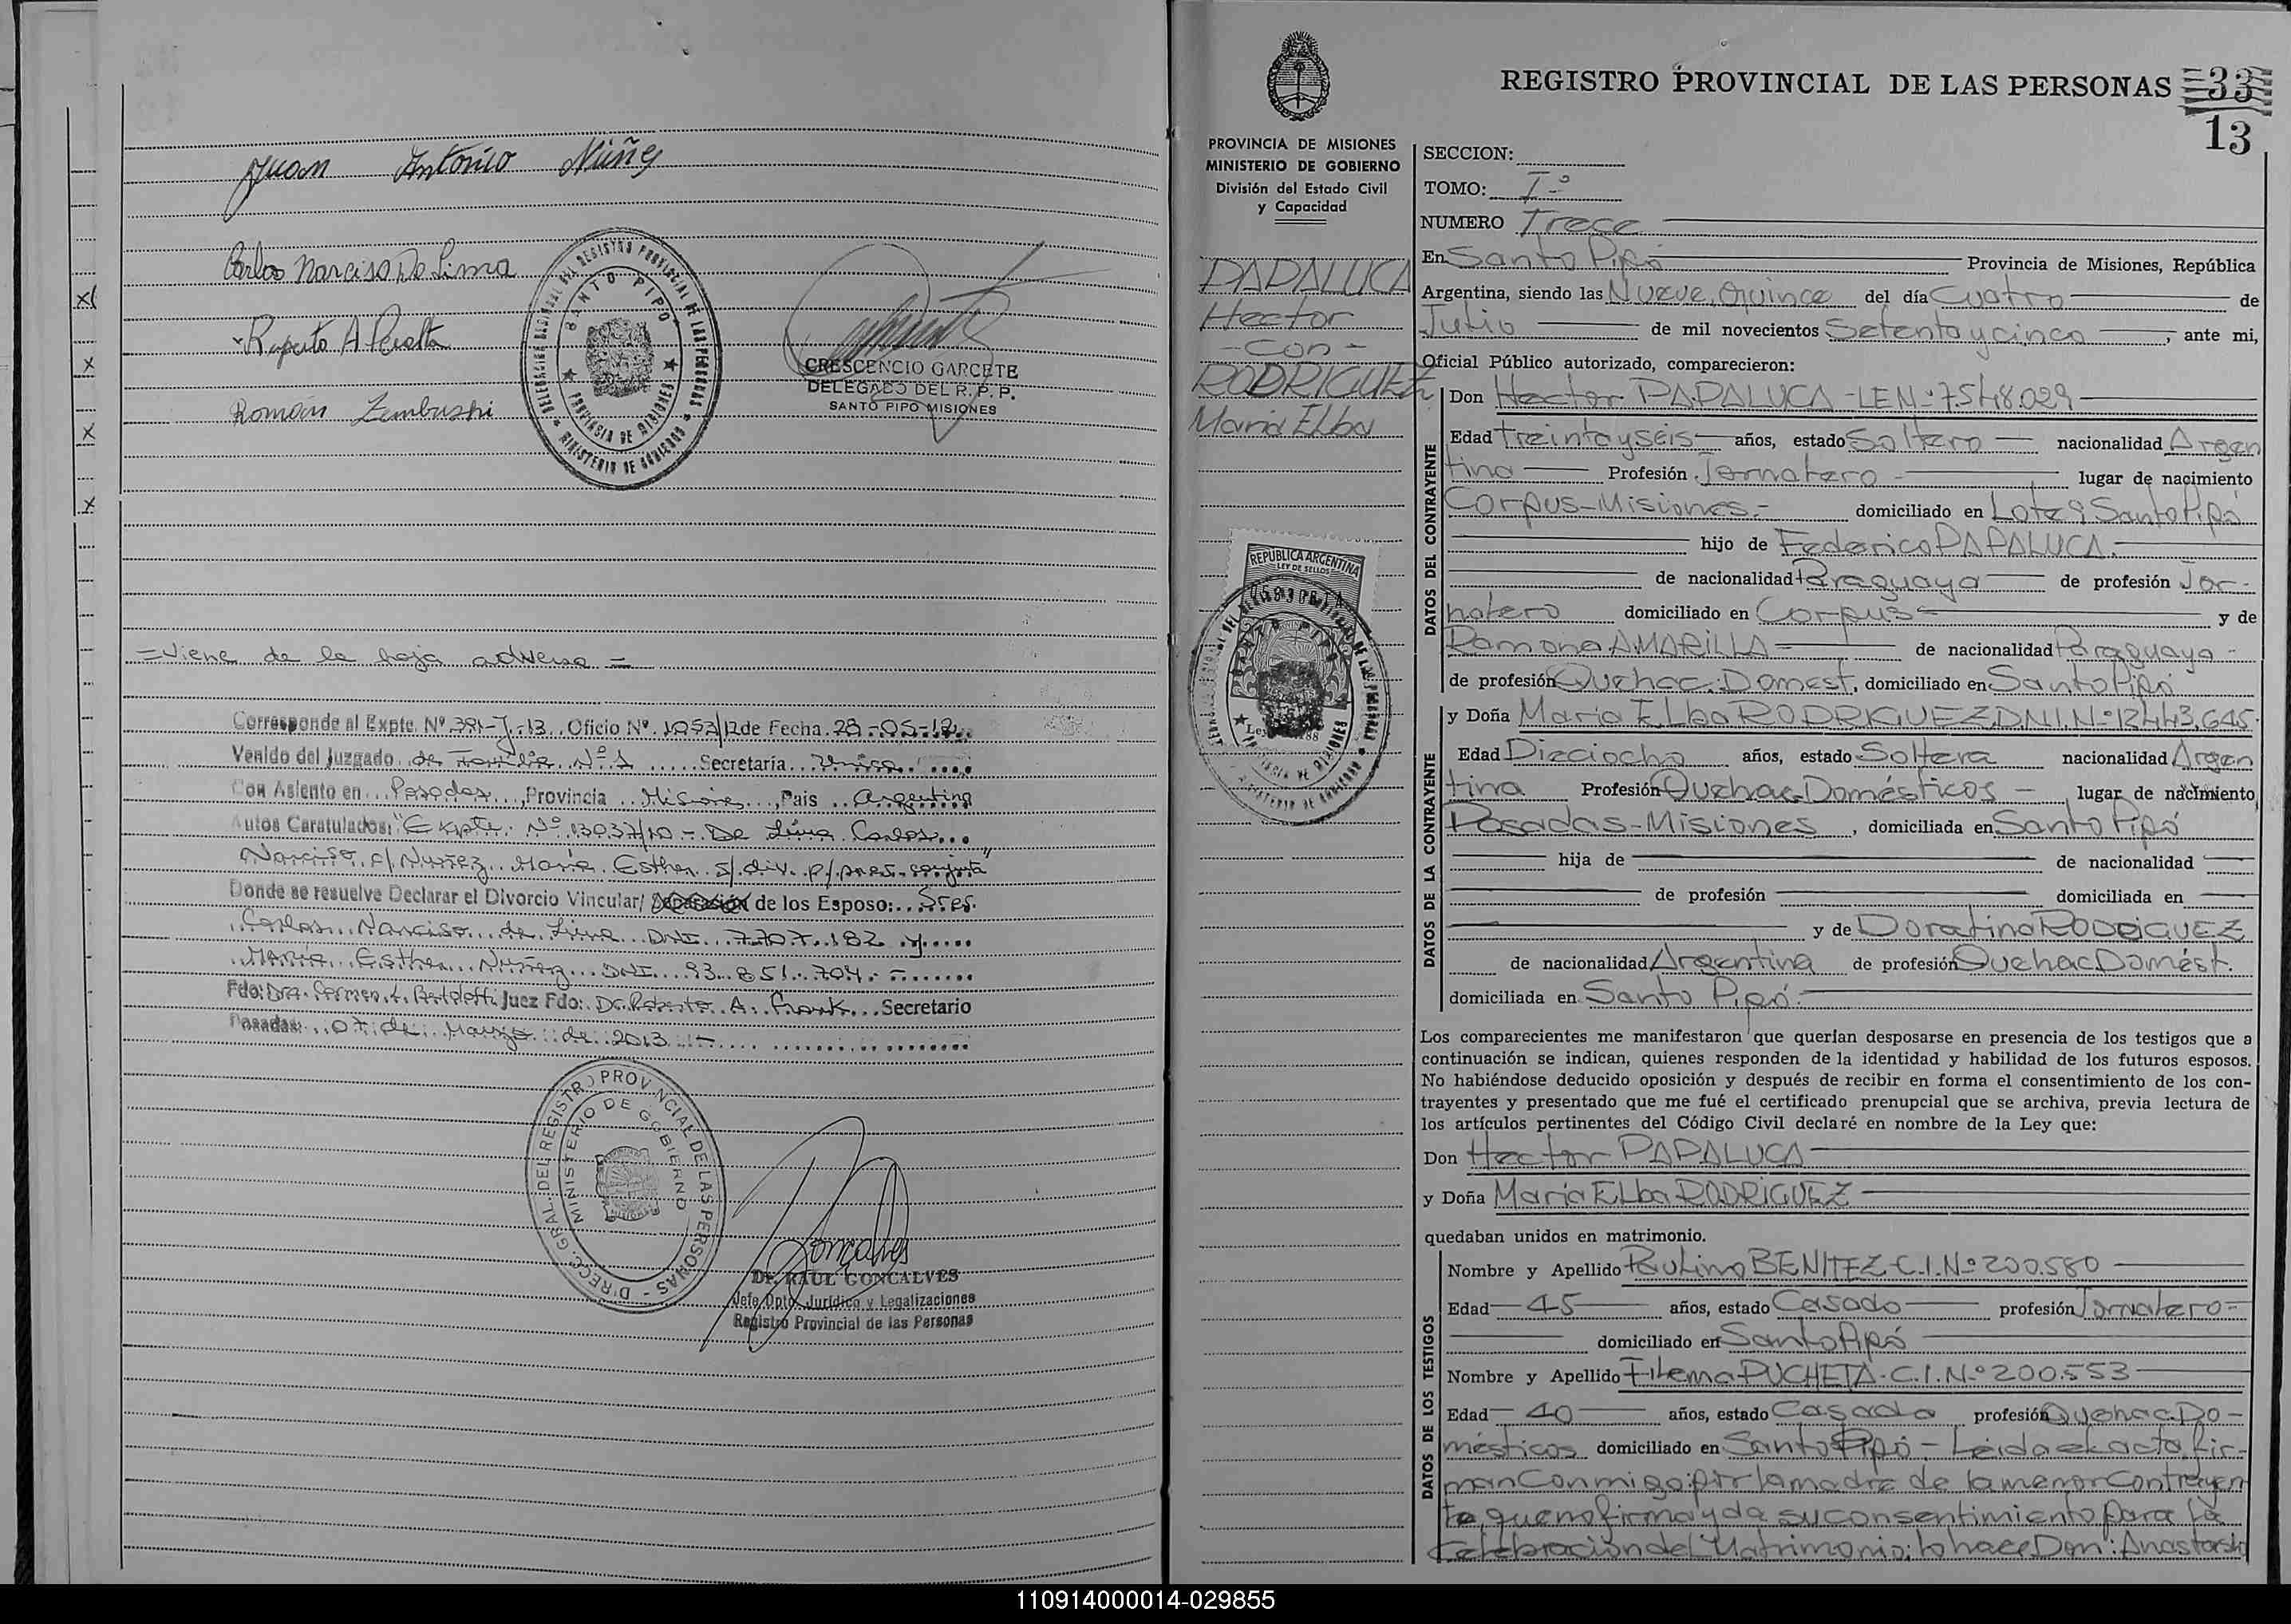 Juan Antonio Núñez
Carlos Narciso De Lima
Ruperto A Peralta
Román
DELEGACION SECCIONAL DEL REGISTRO PROVINCIAL DE LAS PERSONAS
MINISTERIO DE GOBIERNO
SANTO PIPO
PROVINCIA DE MISIONES
CRESCENCIO GARCETE
DELEGADO DEL R. P. P.
SANTO PIPO MISIONES
= Viene de la hoja adversa =
Corresponde al Expte. Nº 391-J-13 Oficio Nº 1053/12 de Fecha 28-05-12
Venido del Juzgado de Familia Nº 1 Secretaría Unica
Con Asiento en Posadas, Provincia Misiones, País Argentina
Autos Caratulados: "Expte. Nº 13037/10 - De Lima Carlos
Narciso c/ Nuñez María Esther s/ div. p/ pres. conjunta"
Donde se resuelve Declarar el Divorcio Vincular/ Separación de los Esposo: Sres.
Carlos Narciso de Lima DNI 7.707.182 y
María Esther Nuñez DNI 93.851.704.-
Fdo: Dra. Carmen Juez Fdo: Dr. Roberto A. Frank Secretario
Posadas: 07 de Marzo de 2013.-
DIRECC. GRAL. DEL REGISTRO PROVINCIAL DE LAS PERSONAS
MINISTERIO DE GOBIERNO
Goncalves
Dr. RAUL GONCALVES
Jefe Dpto. Jurídico y Legalizaciones
Registro Provincial de las Personas
REGISTRO PROVINCIAL DE LAS PERSONAS 33
13
PROVINCIA DE MISIONES
MINISTERIO DE GOBIERNO
División del Estado Civil
y Capacidad
PAPALUCA
Hector
- con -
RODRIGUEZ
Maria Elba
REPUBLICA ARGENTINA
LEY DE SELLOS
SANTO PIPO
SECCION:
TOMO: Iº
NUMERO Trece
En Santo Pipó Provincia de Misiones, República
Argentina, siendo las Nueve, Quince del día Cuatro de
Julio de mil novecientos Setenta y cinco, ante mi,
Oficial Público autorizado, comparecieron:
DATOS DEL CONTRAYENTE
Don Hector PAPALUCA - LE Nº 7.548.029
Edad treinta y seis años, estado Soltero nacionalidad Argen
tina Profesión Jornalero lugar de nacimiento
Corpus-Misiones.- domiciliado en Lote 9 Santo Pipó
hijo de Federico PAPALUCA.
de nacionalidad Paraguaya de profesión Jor-
nalero domiciliado en Corpus y de
Ramona AMARILLA de nacionalidad Paraguaya -
de profesión Quehac. Domest., domiciliado en Santo Pipó
DATOS DE LA CONTRAYENTE
y Doña Maria Elba RODRIGUEZ D.N.I. Nº 12.443.645
Edad Dieciocho años, estado Soltera nacionalidad Argen
tina Profesión Quehac. Domésticos - lugar de nacimiento
Posadas-Misiones, domiciliada en Santo Pipó
hija de de nacionalidad
de profesión domiciliada en
y de Doratina RODRIGUEZ
de nacionalidad Argentina de profesión Quehac. Domést.
domiciliada en Santo Pipó.
Los comparecientes me manifestaron que querían desposarse en presencia de los testigos que a
continuación se indican, quienes responden de la identidad y habilidad de los futuros esposos.
No habiéndose deducido oposición y después de recibir en forma el consentimiento de los con-
trayentes y presentado que me fué el certificado prenupcial que se archiva, previa lectura de
los artículos pertinentes del Código Civil declaré en nombre de la Ley que:
Don Hector PAPALUCA
y Doña María Elba RODRIGUEZ
quedaban unidos en matrimonio.
DATOS DE LOS TESTIGOS
Nombre y Apellido Paulino BENITEZ C.I. Nº 200.580
Edad 45 años, estado Casado profesión Jornalero -
domiciliado en Santo Pipó
Nombre y Apellido Filema PUCHETA - C.I. Nº 200.553
Edad 40 años, estado Casada profesión Quehac. Do-
mésticos domiciliado en Santo Pipó - Leída el acta fir-
man conmigo: por la madre de la menor contrayen
te, que no firma y da su consentimiento para la
celebración del Matrimonio: lo hace Don:
110914000014-029855